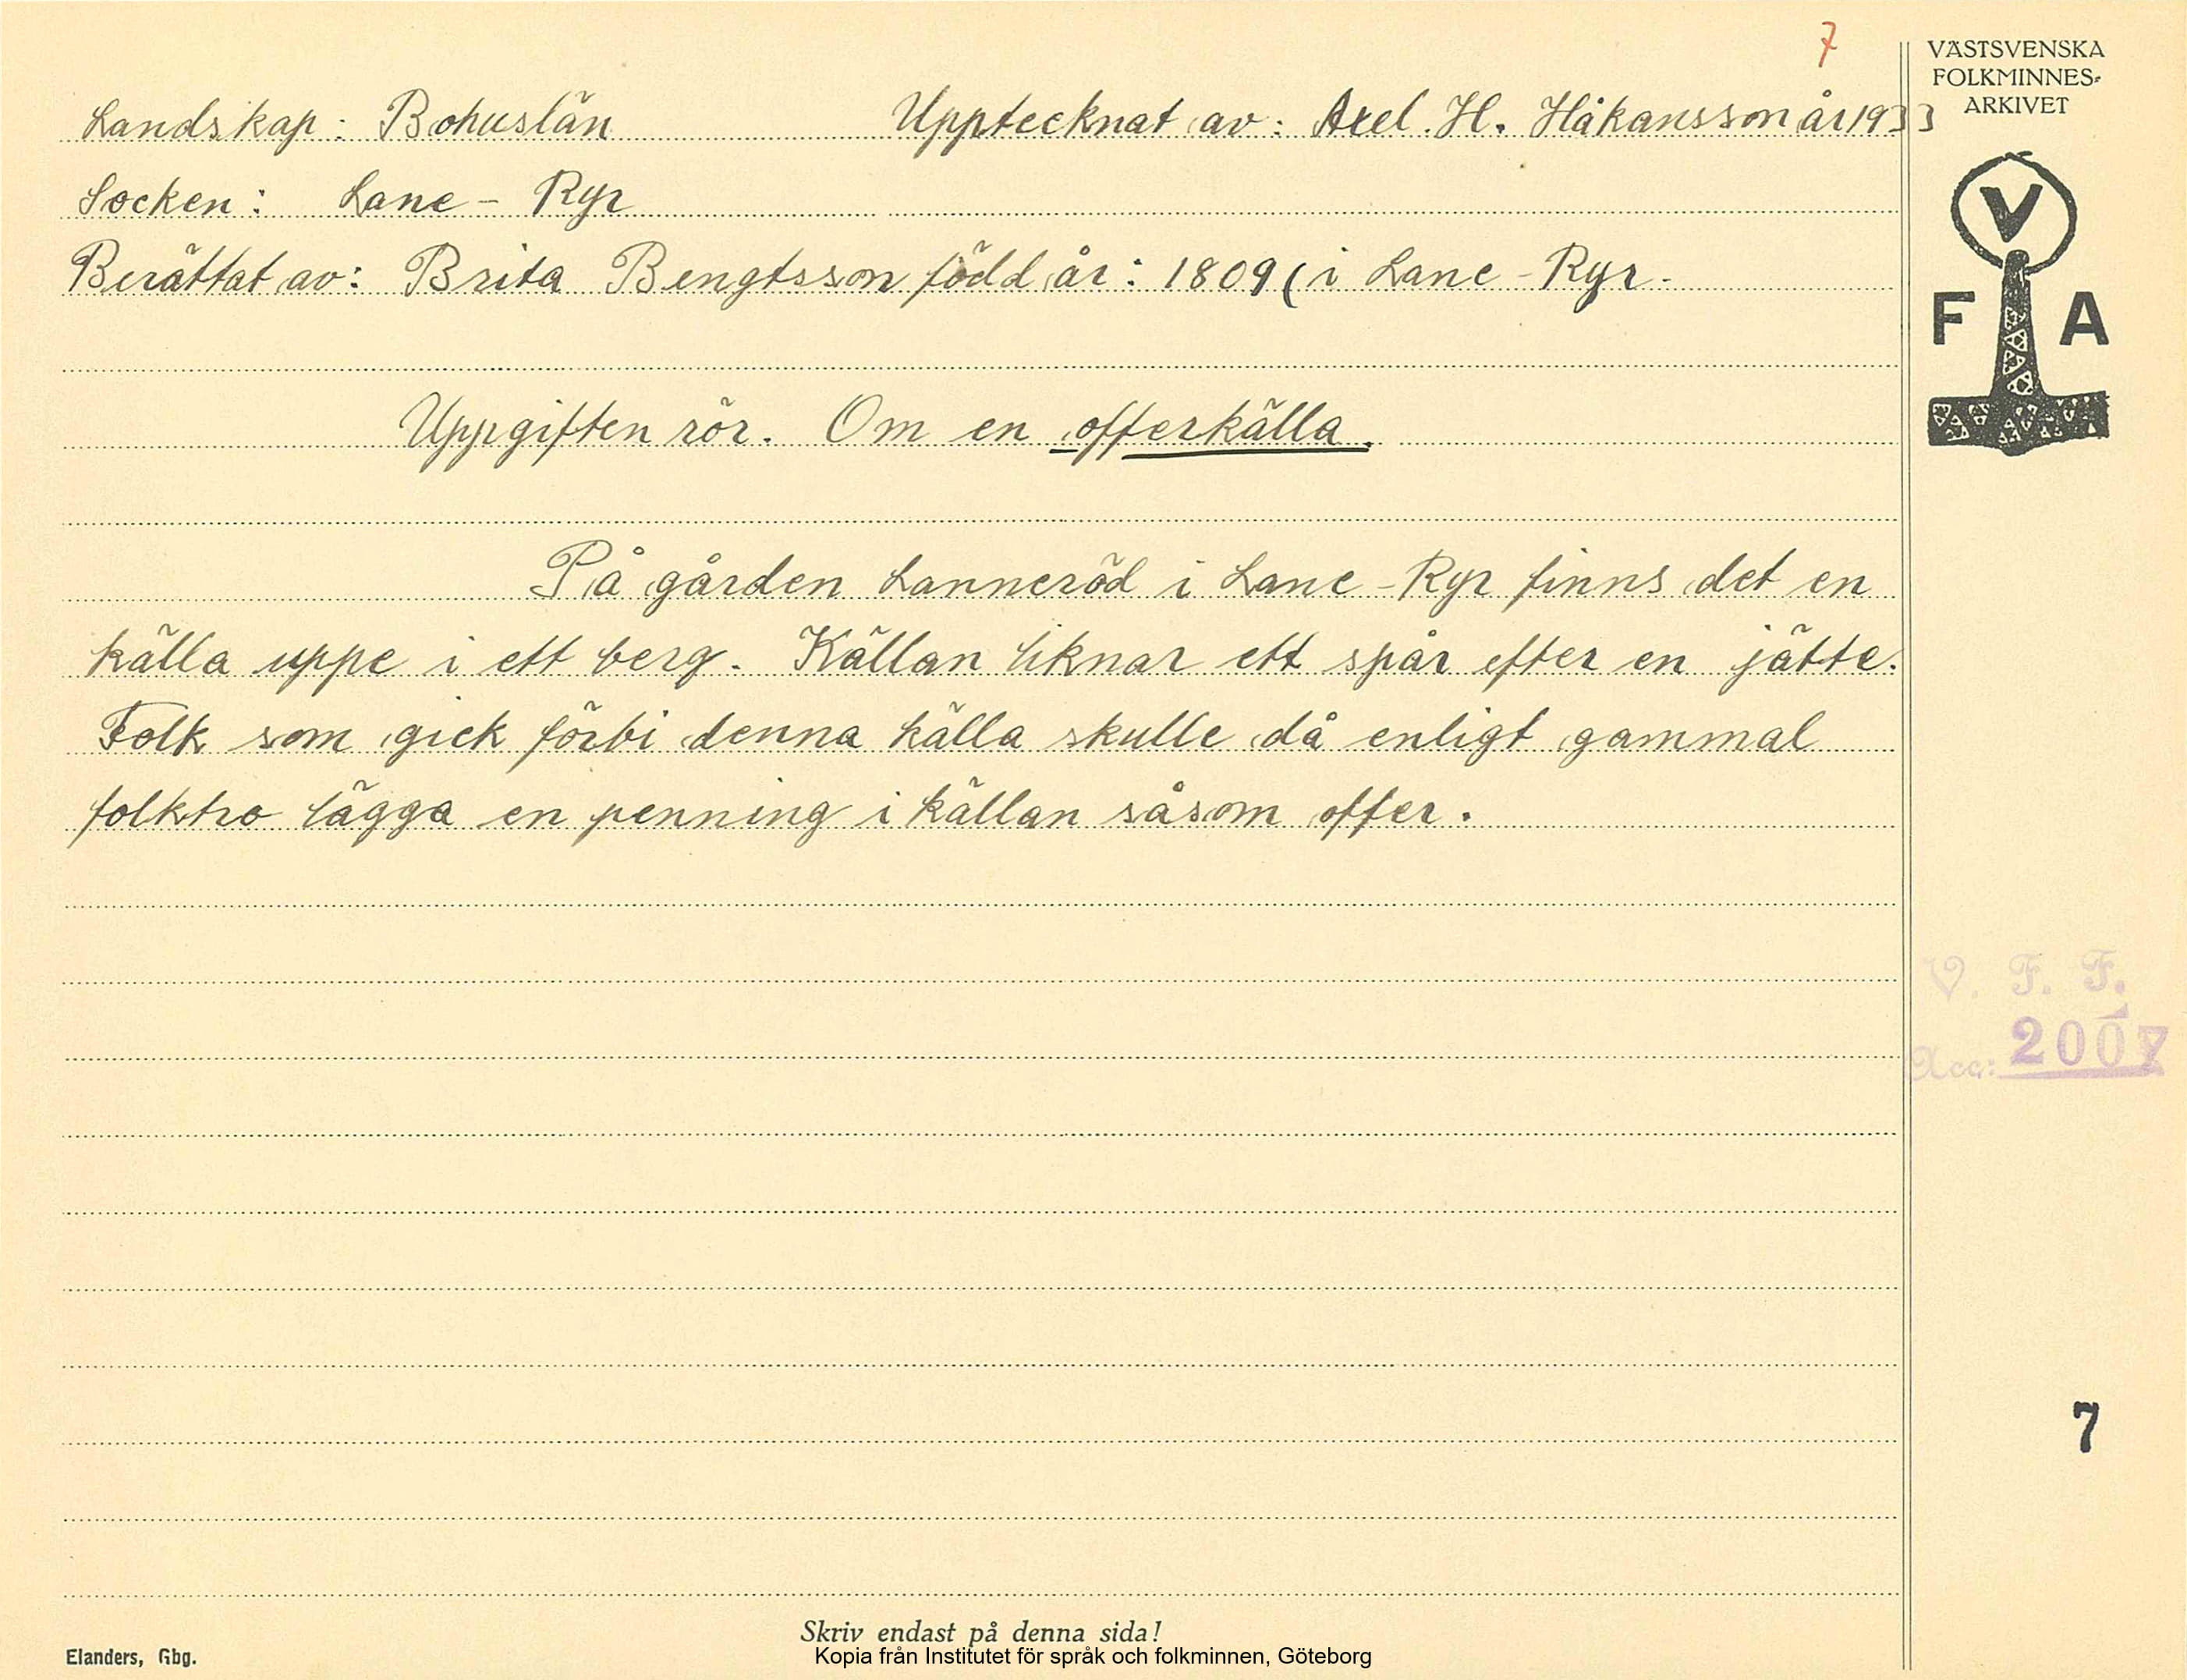 7
VÄSTSVENSKA
FOLKMINNES-
ARKIVET
Landskap: Bohuslän Upptecknat av: Axel. H. Håkansson år 1933
Socken: Lane - Ryr
Berättat av: Brita Bengtsson född år: 1809 (i Lane - Ryr.
V
F A
Uppgiften rör. Om en offerkälla.
På gården Lanneröd i Lane-Ryr finns det en
källa uppe i ett berg. Källan liknar ett spår efter en jätte.
Folk som gick förbi denna källa skulle då enligt gammal
folktro lägga en penning i källan såsom offer.
V. F. F.
Acc: 2007
7
Skriv endast på denna sida!
Elanders, Gbg.
Kopia från Institutet för språk och folkminnen, Göteborg